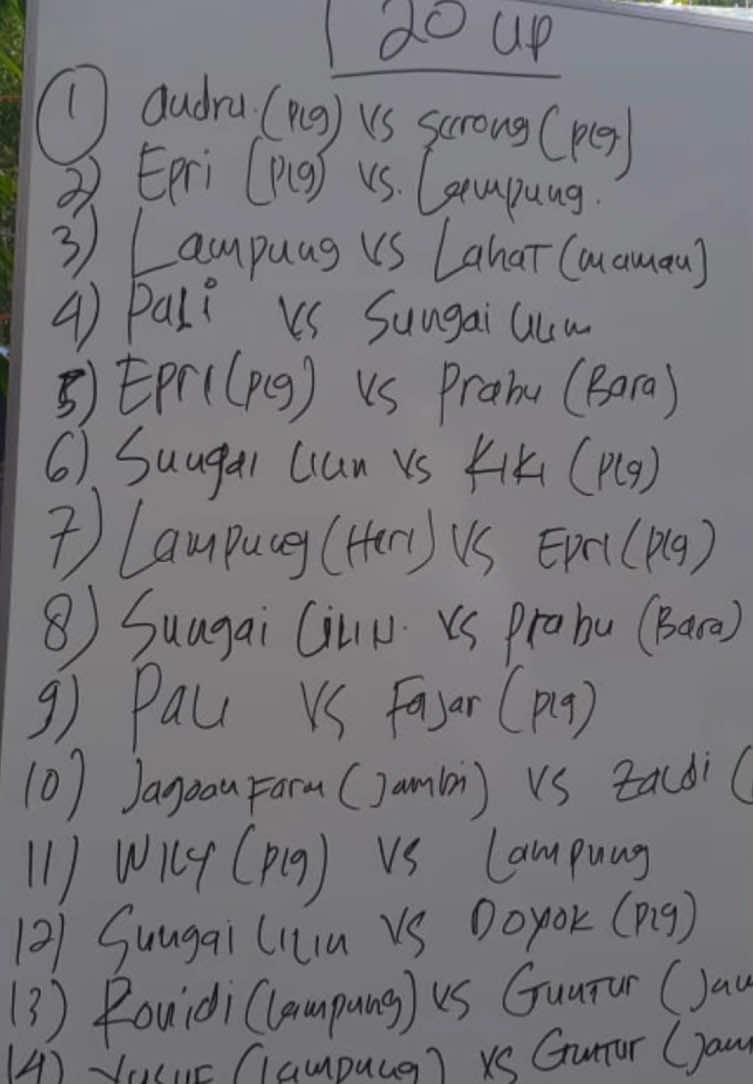 20 UP
1 Audru (plg) vs Sarong (plg)
2) Epri (plg) vs. Lampung.
3) Lampung vs Lahat (maman)
4) Pali vs Sungai Lilin
5) Epri (plg) vs Prabu (Bara)
6) Sungai Lilin vs Kiki (plg)
7) Lampung (Heri) vs Epri (plg)
8) Sungai Lilin. vs Prabu (Bara)
9) Pali vs Fajar (plg)
10) Jagoan Farm (Jambi) vs Zaldi (
11) Wily (plg) vs Lampung
12) Sungai Lilin vs Doyok (plg)
13) Rovidi (Lampung) vs Guntur (Jam
14) Yusuf (Lampung) vs Guntur (Jam